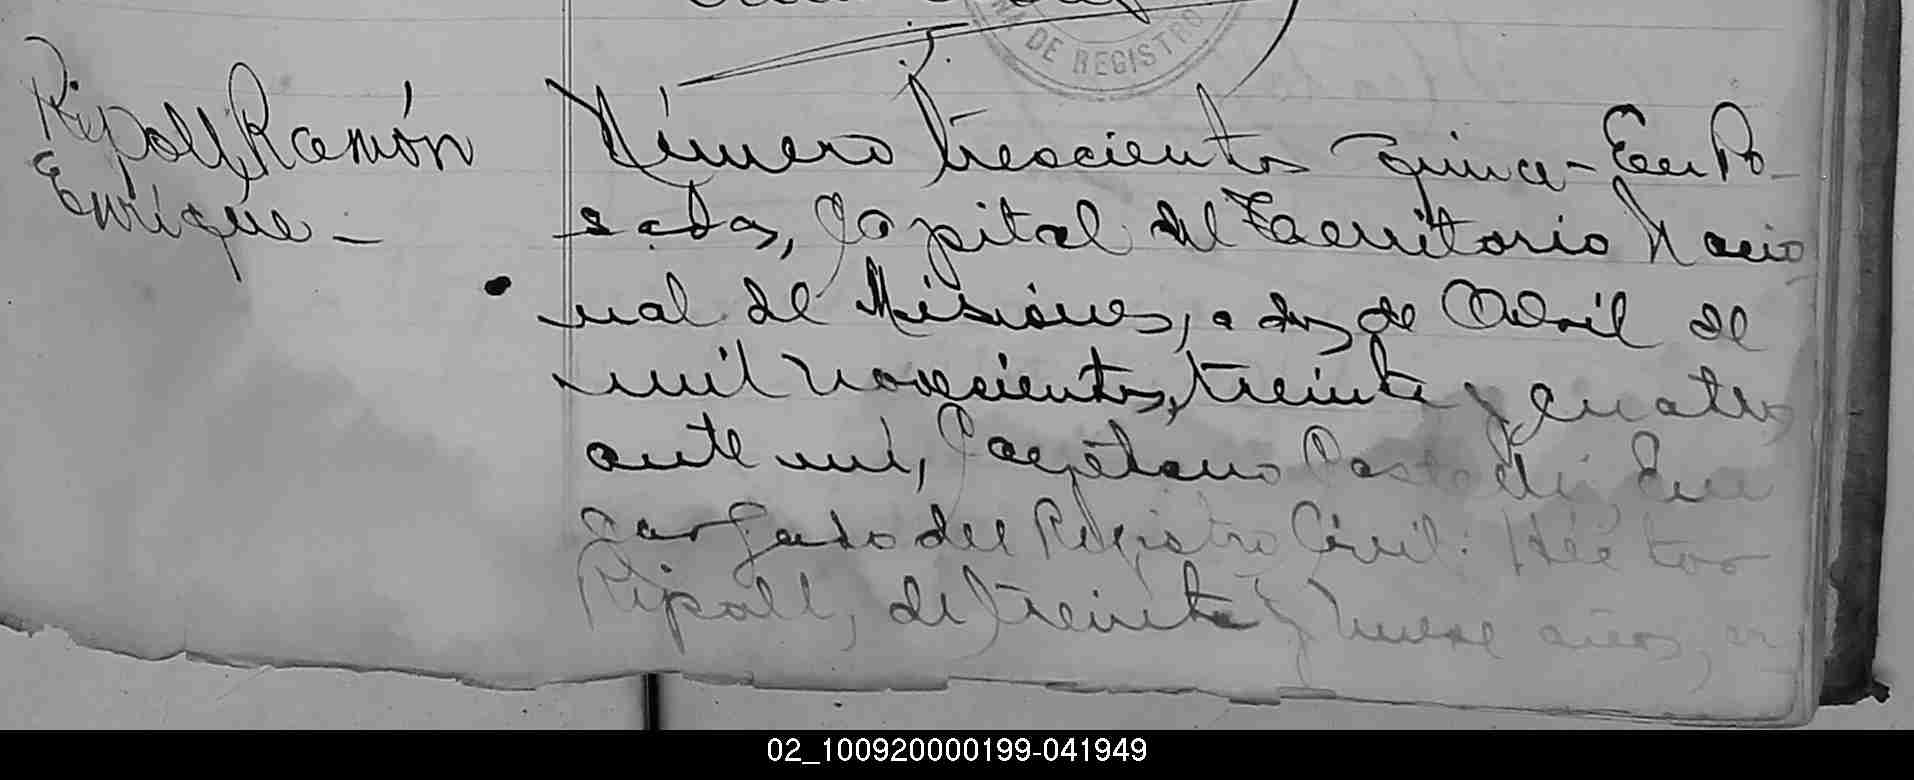 DE REGISTRO
Ripoll, Ramón
Enrique_
Número trescientos quince - En Po-
sadas, Capital del Territorio Nacio
nal de Misiones, a dos de Abril de
mil novecientos, treinta y cuatro
ante mí, Cayetano Castelli, En
cargado del Registro Civil: Héctor
Ripoll, de treinta y nueve años,
02_100920000199-041949